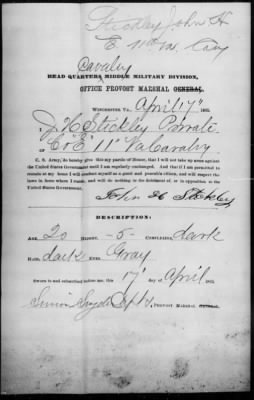 Stickley, John H
E 11th Va. Cavy
Cavalry
HEAD QUARTERS MIDDLE MILITARY DIVISION,
OFFICE PROVOST MARSHAL GENERAL,
WINCHESTER, VA., April 17" 1865.
I J. H. Stickley Private
of Co "E" 11" Va Cavalry
C. S. Army, do hereby give this my parole of Honor, that I will not take up arms against
the United States Government until I am regularly exchanged. And that if I am permitted to
remain at my home I will conduct myself as a good and peaceable citizen, and will respect the
laws in force where I reside, and will do nothing to the detriment of, or in opposition to the
United States Government.
John H Stickley
DESCRIPTION:
AGE, 20 HEIGHT, -5- COMPLEXION, dark
HAIR, dark EYES, Gray
Sworn to and subscribed before me, this 17" day of April 1865.
PROVOST MARSHAL GENERAL.